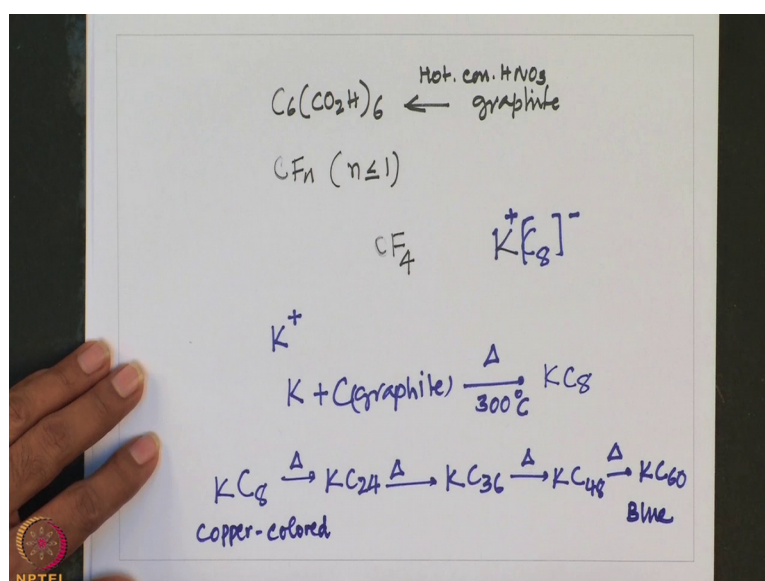 Hot. con. HNO3
C6(CO2H)6 ← graphite
CFn (n≤1)
CF4 K+[C8]-
K+
K + C(graphite) Δ 300°C → KC8
KC8 Δ→ KC24 Δ→ KC36 Δ→ KC48 Δ→ KC60
Copper-colored Blue
NPTEL